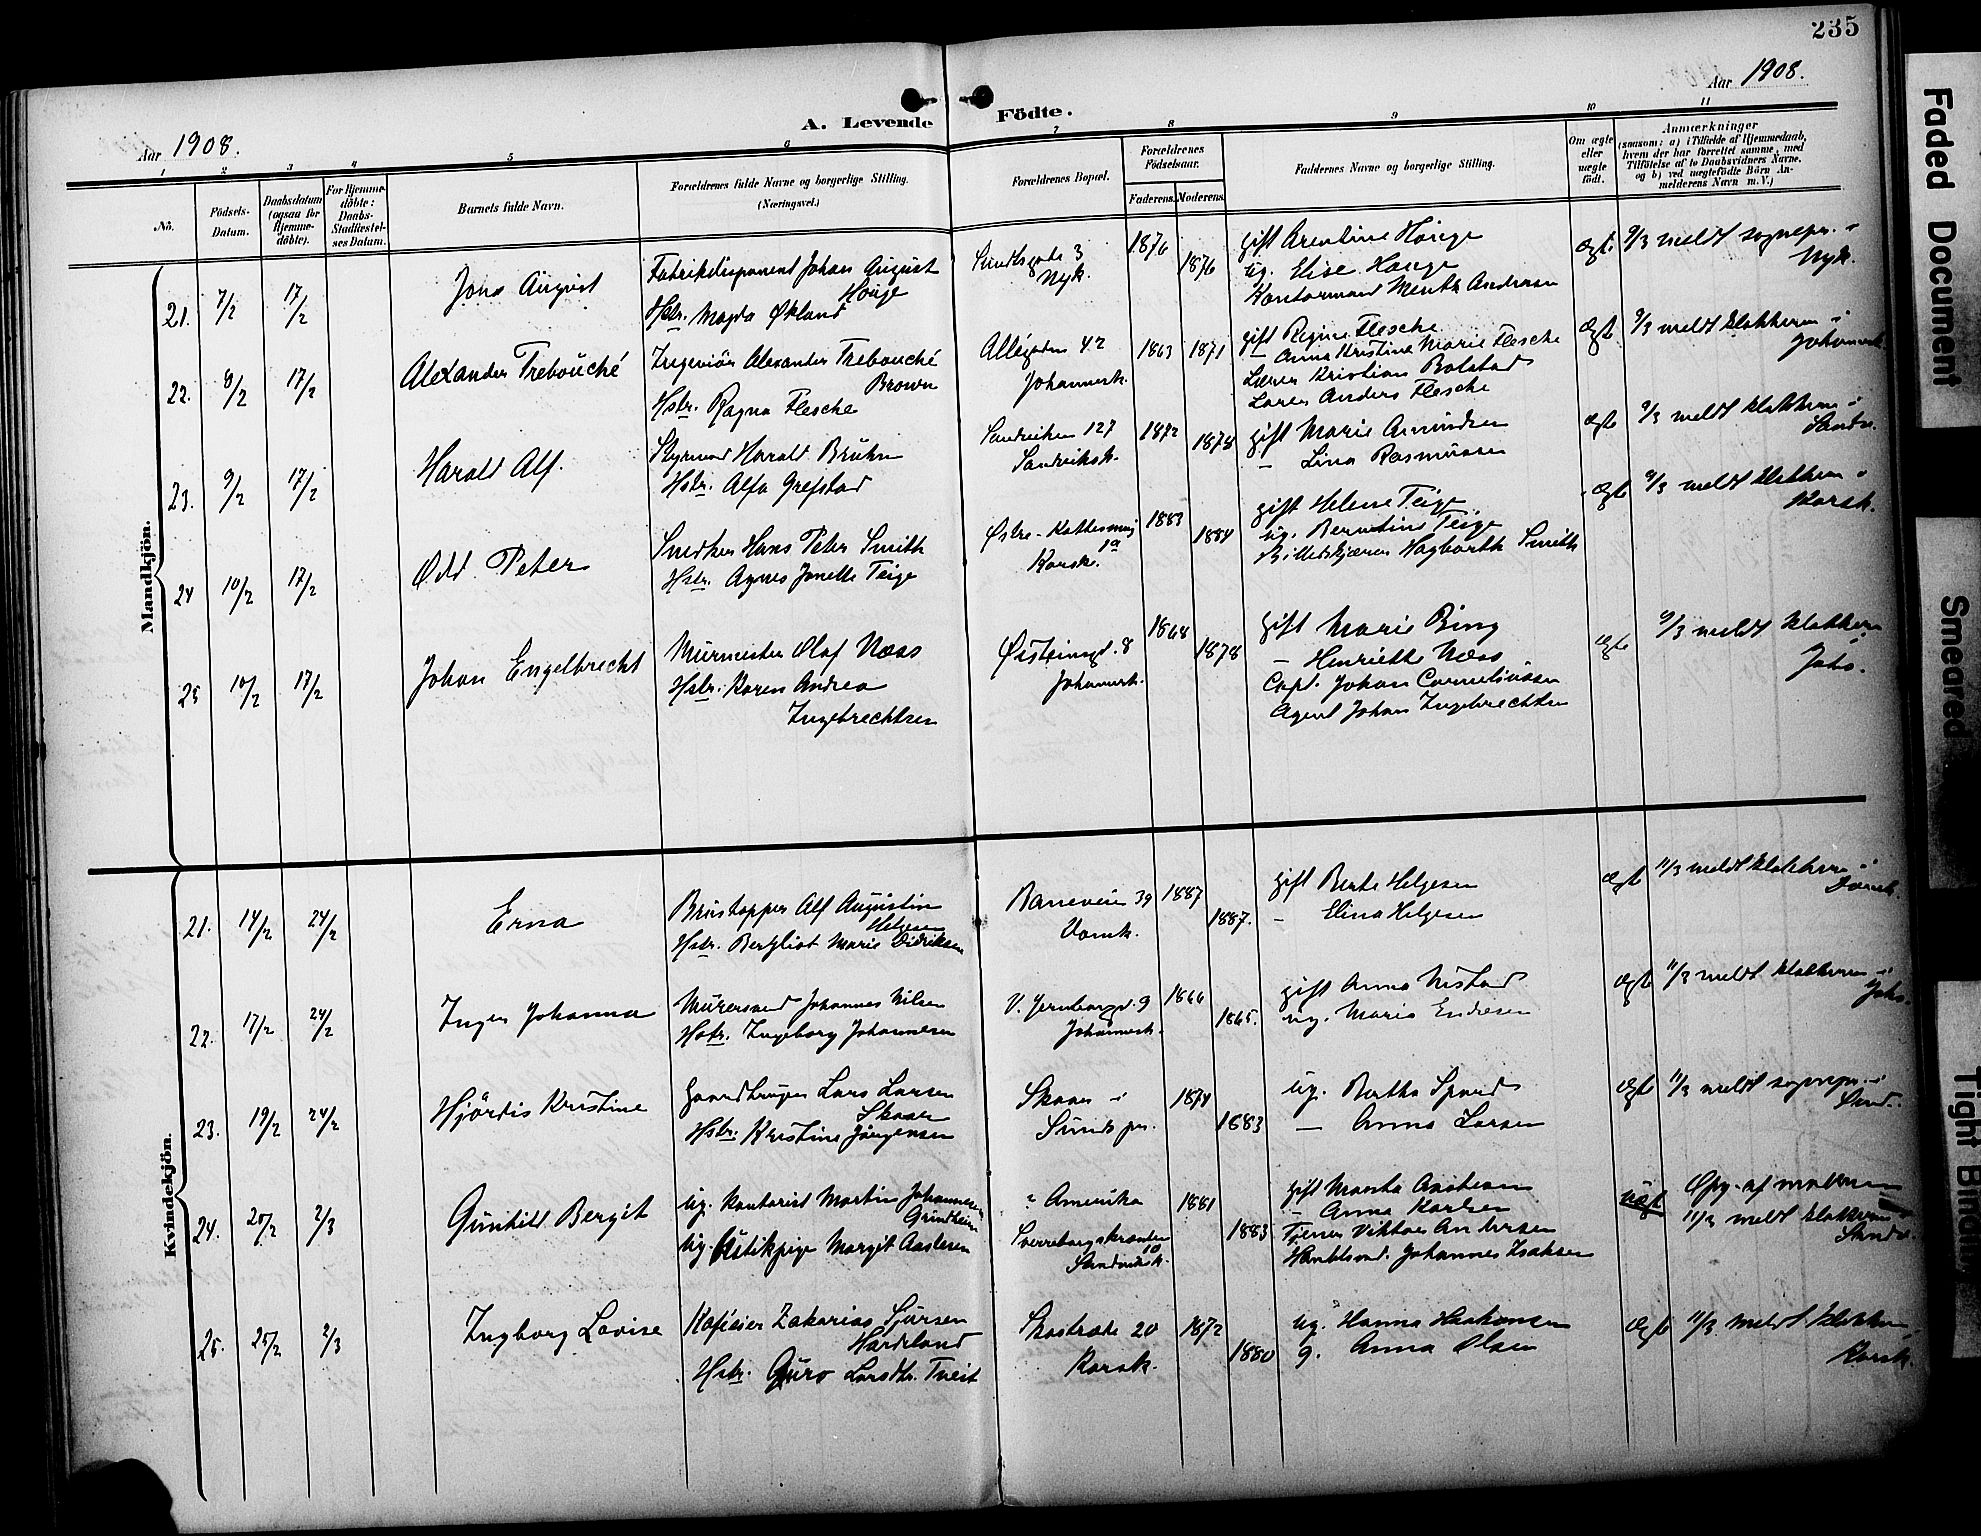 235
Aar 1908.
A. Levende Födte.
Aar 1908.
1 2 3 4 5 6 7 8 9 10 11
No.
Födsels-Datum.
Daabsdatum (ogsaa for Hjemme-döbte).
For Hjemme-döbte: Daabs-Stadfæstel-ses Datum.
Barnets fulde Navn.
Forældrenes fulde Navne og borgerlige Stilling. (Næringsvei.)
Forældrenes Bopæl.
Forældrenes Födselsaar.
Faderens. Moderens.
Faddernes Navne og borgerlige Stilling.
Om ægte eller uægte födt.
Anmærkninger (saasom: a) i Tilfælde af Hjemmedaab, hvem der har forrettet samme, med Tilföielse af to Daabsvidners Navne, og b) ved uægtefödte Börn Anmelderens Navn m. V.)
Mandkjön.
21. 7/2 17/2
Jons August
Fabrikdisponent Johan August
Houge
Hstr. Magda Økland
Nyk.
1876 1876
gift Arentine Houge
ug. Elise Houge
Kontormand Menth Andersen
Ægte
9/3 meldt sognepr. i
Nyk.
22. 8/2 17/2
Alexander Trebouché
Ingeniör Alexander Trebouché
Brown
Hstr. Ragna Flesche
Allégaden 42
Johannesk.
1863 1871
gift Regine Flesche
– Anna Kristine Marie Flesche
Lærer Kristian Bolstad
Lærer Anders Flesche
Ægte
9/3 meldt klokkeren i
Johannesk.
23. 9/2 17/2
Harald Alf.
Styrmand Harald Bruhn
Hstr. Alfa Grefstad
Sandviken 127
Sandviksk.
1872 1878
gift Marie Amundsen
– Lina Rasmussen
Ægte
9/3 meldt klokkeren i
Sandv.
24 10/2 17/2
Odd Peter
Snedker Hans Peter Smith
Hstr. Agnes Jonette Teige
Østre-Kattesmug
1a
Korsk.
1883 1884
gift Helene Teige
ug. Berntine Teige
Billedskjærer Hagbarth Smith
Ægte
9/3 meldt klokkeren i
Korsk.
25 10/2 17/2
Johan Engelbrecht
Murmester Olaf Næss
Hstr. Karen Andrea
Ingebrechtsen
Øisteinsgd. 8
Johannesk.
1868 1878
gift Marie Bing
– Henriette Næss
Capt. Johan Corneliussen
Agent Johan Ingebrechtsen
Ægte
9/3 meldt klokkeren
Johs.
Kvindekjön.
21. 14/2 24/2
Erna
Brustapper Alf Augustin
Helgesen
Hstr. Bergliot Marie Didriksen
39
1887 1887.
gift Berte Helgesen
– Elina Helgesen
Ægte
11/3 meldt klokkeren i
22. 17/2 24/2
Inger Johanna
Murersvend Johannes Nilsen
Hstr. Ingeborg Johannesen
V. Jernbanegd. 9
Johannesk.
1866 1865.
gift Anna Nistad
ug. Marie Endresen
Ægte
11/3 meldt klokkeren i
Johs.
23. 19/2 24/2
Hjördis Kristine
Gaardbruger Lars Larsen
Skaar
Hstr. Kristine Jörgensen
Skaar i
Sunds pr.
1874 1883
ug. Bertha
– Anna Larsen
Ægte
11/3 meldt sognepr. i
Sund.
24. 20/2 2/3
Gunhild Bergit
ug. Kontorist Martin Johannesen
Grindheim
ug. Margit Aastesen
Amerika
Sverreborgskranten
10
Sandviksk.
1881 1883
gift Marta Aastesen
– Anna Karlsen
Tjener Viktor Andersen
Johannes Isaksen
uægt
Opg. af moderen
11/3 meldt klokkeren
Sandv.
25. 25/2 2/3
Ingborg Lovise
Zakarias Sjursen
Hardeland
Hstr. Guro Larsdtr. Tveit
Skostræde 20
Korsk.
1872 1880
ug. Hanna Haakonsen
g. Anna Olsen
Ægte
11/3 meldt klokkeren
Korsk.
Faded Document
Smeared
Tight Binding